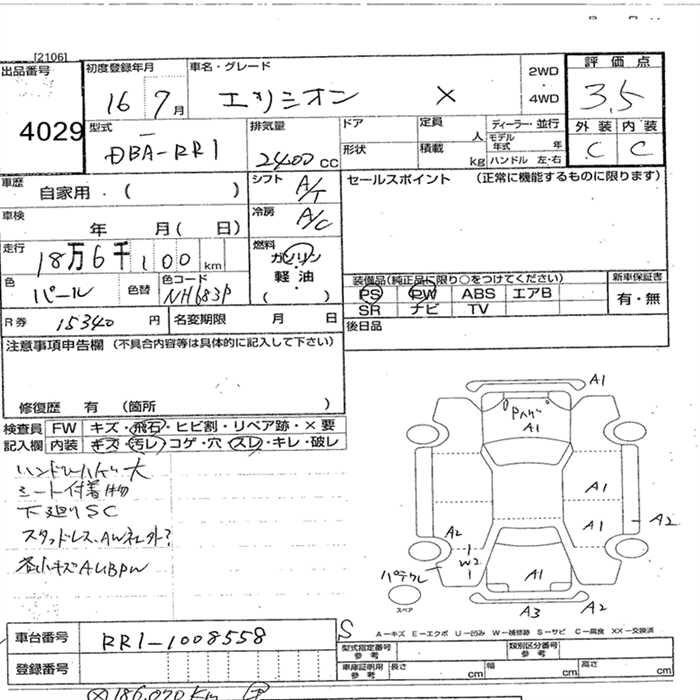 [2106]
出品番号
4029
初度登録年月
16 7月
車名・グレード
エリシオン X
2WD
・
4WD
評価点
3.5
外装 内装
C C
型式
DBA-RR1
排気量
2400cc
ドア
定員 人
ディーラー・並行
モデル年式 年
形状
積載 kg
ハンドル 左・右
車歴
自家用・( )
シフト
A/T
セールスポイント (正常に機能するものに限ります)
車検
年 月( 日)
冷房
A/C
走行
18万6千100km
燃料
ガソリン
・
軽・油
( )
色
パール
色替
色コード
NH683P
装備品(純正品に限り○をつけてください)
新車保証書
PS PW ABS エアB
有・無
SR ナビ TV
R券 15340円
名変期限 月 日
後日品
注意事項申告欄 (不具合内容等は具体的に記入して下さい)
修復歴 有 (箇所 )
検査員 FW キズ・飛石・ヒビ割・リペア跡・×要
記入欄 内装 キズ・汚レ・コゲ・穴・スレ・キレ・破レ
ハンドルハゲ大
シート付着物
下廻りSC
スタッドレス、AW社外?
各小キズAUBPW
A1
Pハゲ
A1
A1
A1
A2
A2
W2
パテクレ
A1
スペア
A3
A2
S
A－キズ E－エクボ U－凹み W－補修跡 S－サビ C－腐食 XX－交換済
車台番号 RR1-1008558
型式指定番号 参考
類別区分番号 参考
登録番号
車庫証明用 参考
長さ cm
幅 cm
高さ cm
186,070Km